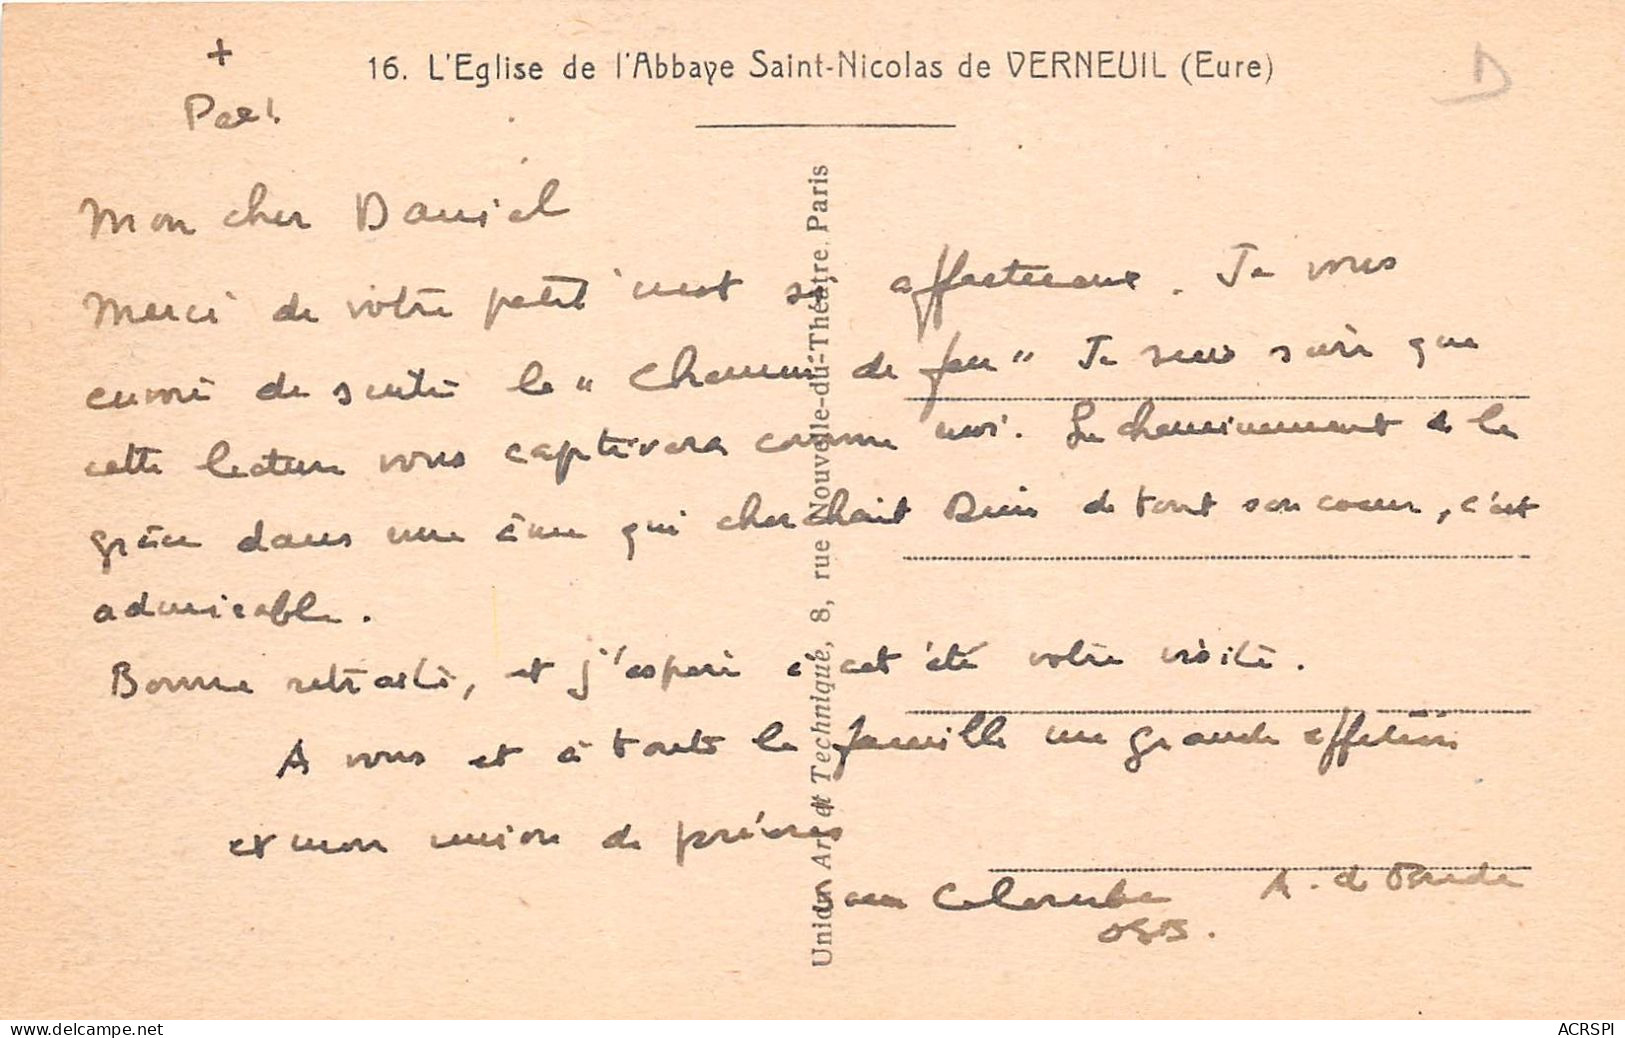 16. L'Eglise de l'Abbaye Saint-Nicolas de VERNEUIL (Eure)
+
Pax!
Mon cher Daniel
Merci de votre petit mot si affectueux. Je vous
envoie de suite le "Chemin de feu" Je suis sûre que
cette lecture vous captivera comme moi. Le cheminement de la
grâce dans une âme qui cherchait Dieu de tout son coeur, c'est
admirable.
Bonne retraite, et j'espère à cet été votre visite.
A vous et à toute la famille ma grande affection
et mon union de prières
Soeur Colombe A. d
OSB.
Union Art et Technique, 8, rue Nouvelle-du-Théâtre, Paris
D
ACRSPI